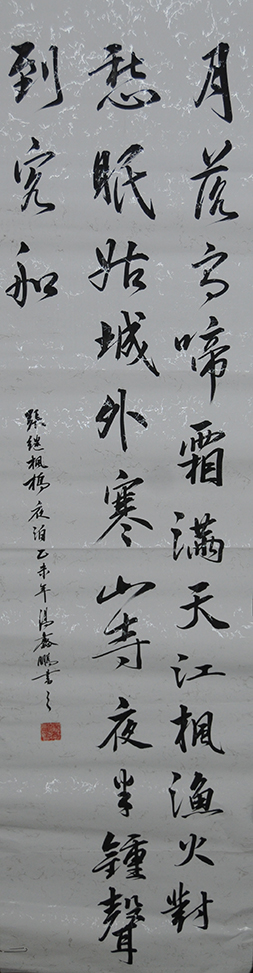 月落烏啼霜滿天江楓漁火對
愁眠姑城外寒山寺夜半鍾聲
到客船
張繼楓橋夜泊乙未年湯鑫鵬書之